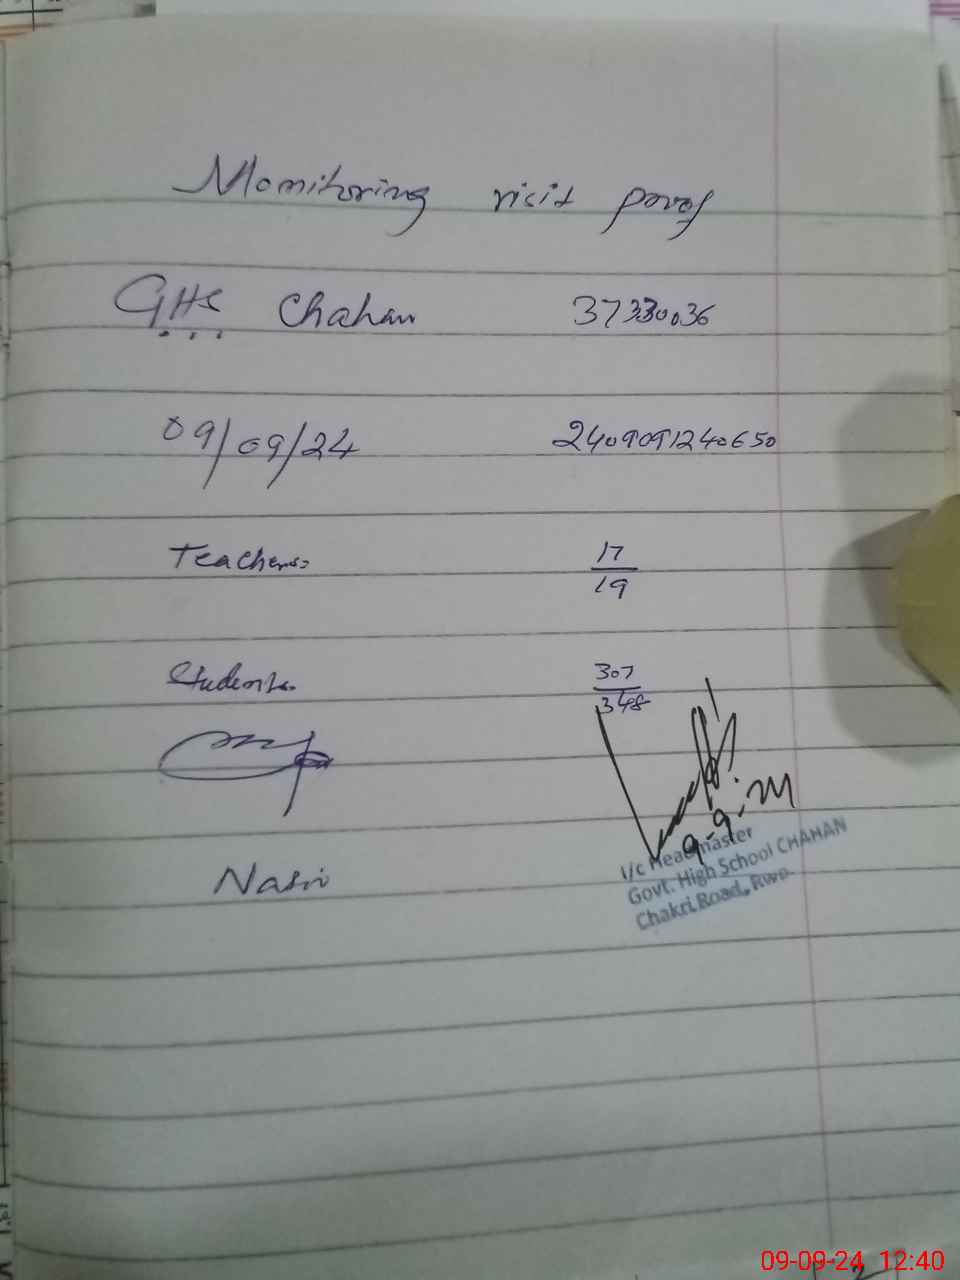 Monitoring visit proof
GHS Chahan 37330036
09/09/24 2409091240650
Teachers 17/19
Students 307/348
9-9-24
I/c Headmaster
Govt. High School CHAHAN
Chakri Road, Rwp
Nasir
09-09-24 12:40